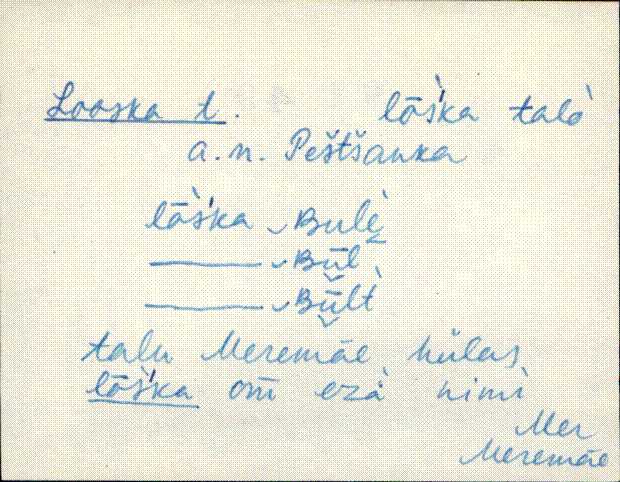 Looska t. lōś̀ka talò
a. n. Peštšanka
lōś̀ka ᴗBulè
——— ᴗBūl
——— ᴗBūlt̀
talu Meremäe külas
lōś'ka om̄ ezà nimì
Mer
Meremäe